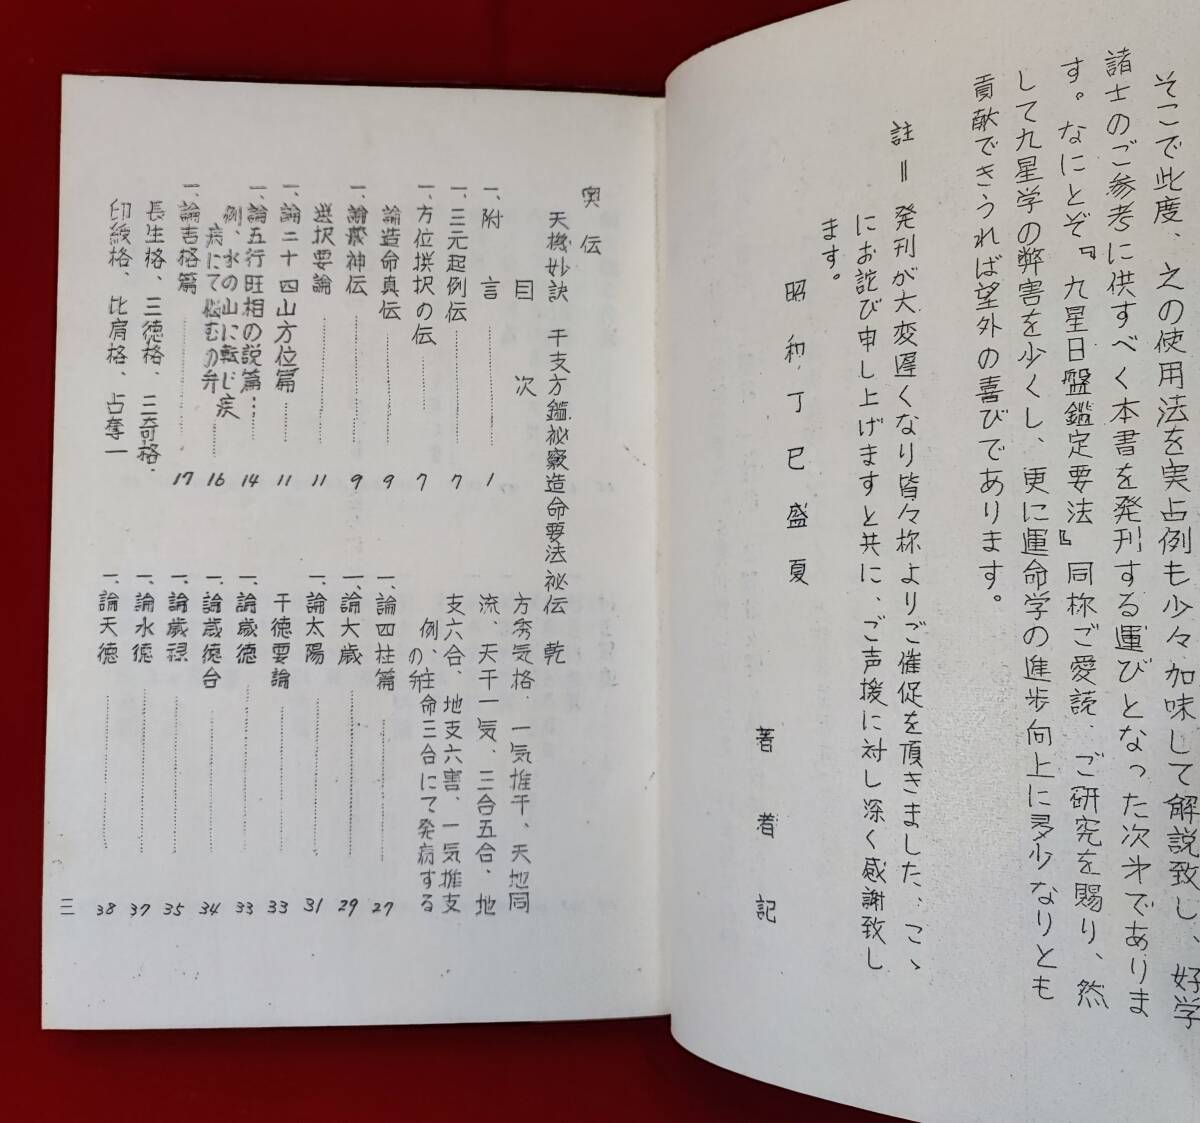 そこで此度、之の使用法を実占例も少々加味して解説致し、好学
諸士のご参考に供すべく本書を発刊する運びとなった次才でありま
す。なにとぞ『九星日盤鑑定要法』同様ご愛読、ご研究を賜り、然
して九星学の弊害を少くし、更に運命学の進歩向上に多少なりとも
貢献できうれば望外の喜びであります。
註＝発刊が大変遅くなり皆々様よりご催促を頂きました、こゝ
にお詑び申し上げますと共に、ご声援に対し深く感謝致し
ます。
昭和丁巳盛夏
著者記
奥伝
天機妙訣 干支方鑑祕竅造命要法祕伝 乾
目次
一、附言 1
一、三元起例伝 7
一、方位撰択の伝 7
論造命真伝 9
一、論幾神伝 9
選択要論 11
一、論二十四山方位篇 11
一、論五行旺相の説篇 14
例、水の山に転じ疾
病にて悩むの弁 16
一、論吉格篇 17
長生格、三徳格、三奇格、
印綬格、比肩格、占奪一
方秀気格、一気推干、天地同
流、天干一気、三合五合、地
支六合、地支六害、一気推支
例、柱命三合にて発病する
の弁
一、論四柱篇 27
一、論大歳 29
一、論太陽 31
干徳要論 33
一、論歳徳 33
一、論歳徳合 34
一、論歳禄 35
一、論水徳 37
一、論天徳 38
三